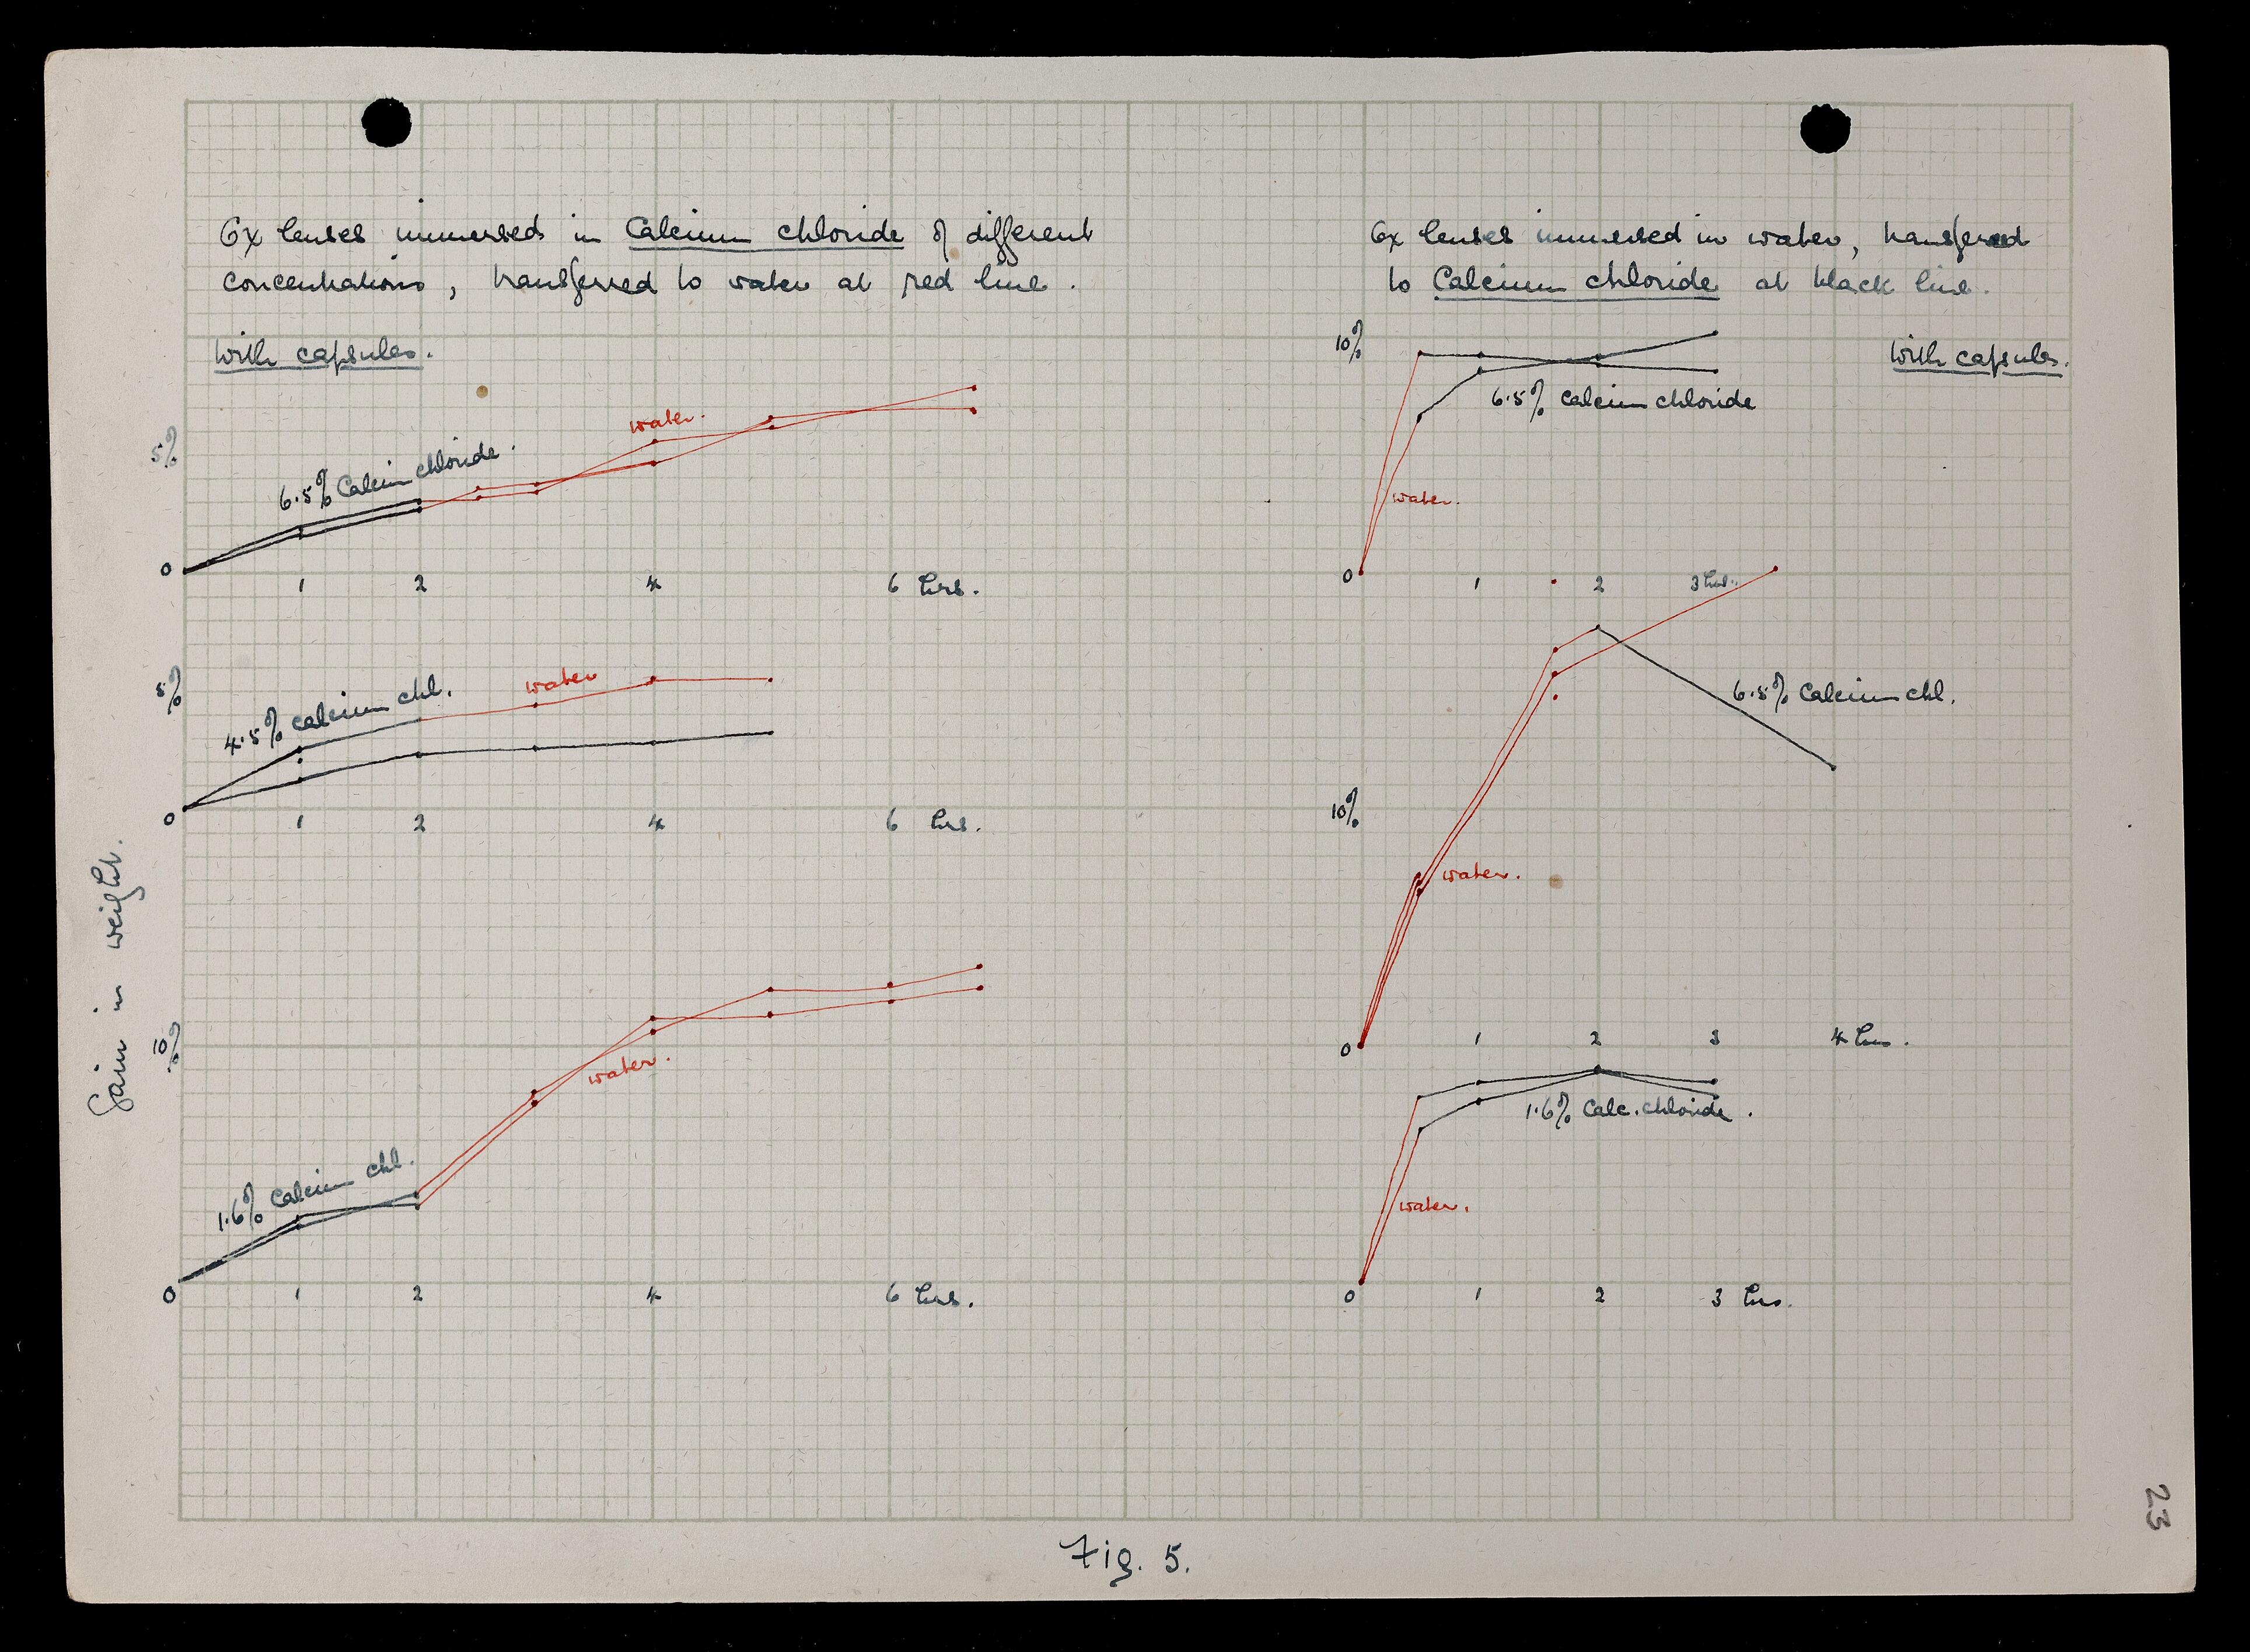 Ox lenses immersed in Calcium chloride of different
concentrations, transferred to water at red line.
With capsules.
5%
6.5% Calcium chloride.
water.
0 1 2 4 6 hrs.
5%
4.5% calcium chl.
water
0 1 2 4 6 hrs.
Gain in weight.
10%
1.6% Calcium chl.
water.
0 1 2 4 6 hrs.
Ox lenses immersed in water, transferred
to Calcium chloride at black line.
10%
With capsules.
6.5% Calcium chloride
water.
0 1 2 3 hrs.
6.5% Calcium chl.
10%
water.
0 1 2 3 4 hrs.
1.6% Calc. chloride.
water.
0 1 2 3 hrs.
Fig. 5.
23